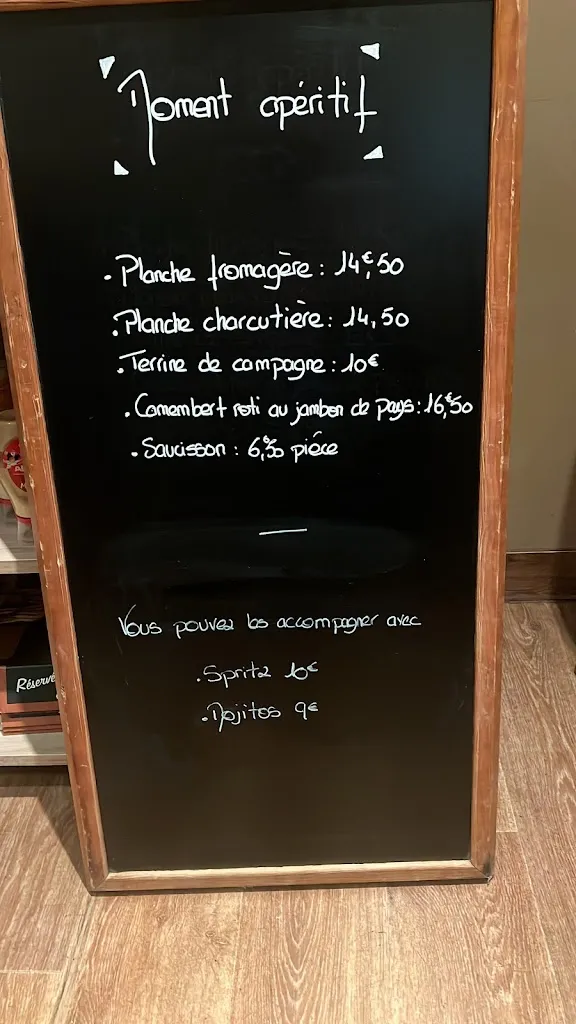 Moment apéritif
• Planche fromagère : 14€,50
• Planche charcutière : 14,50
• Terrine de campagne : 10€
• Camembert roti au jambon de pays : 16€,50
• Saucisson : 6€,50 pièce
—
Vous pouvez les accompagner avec
• Spritz 10€
• Mojitos 9€
Réservé